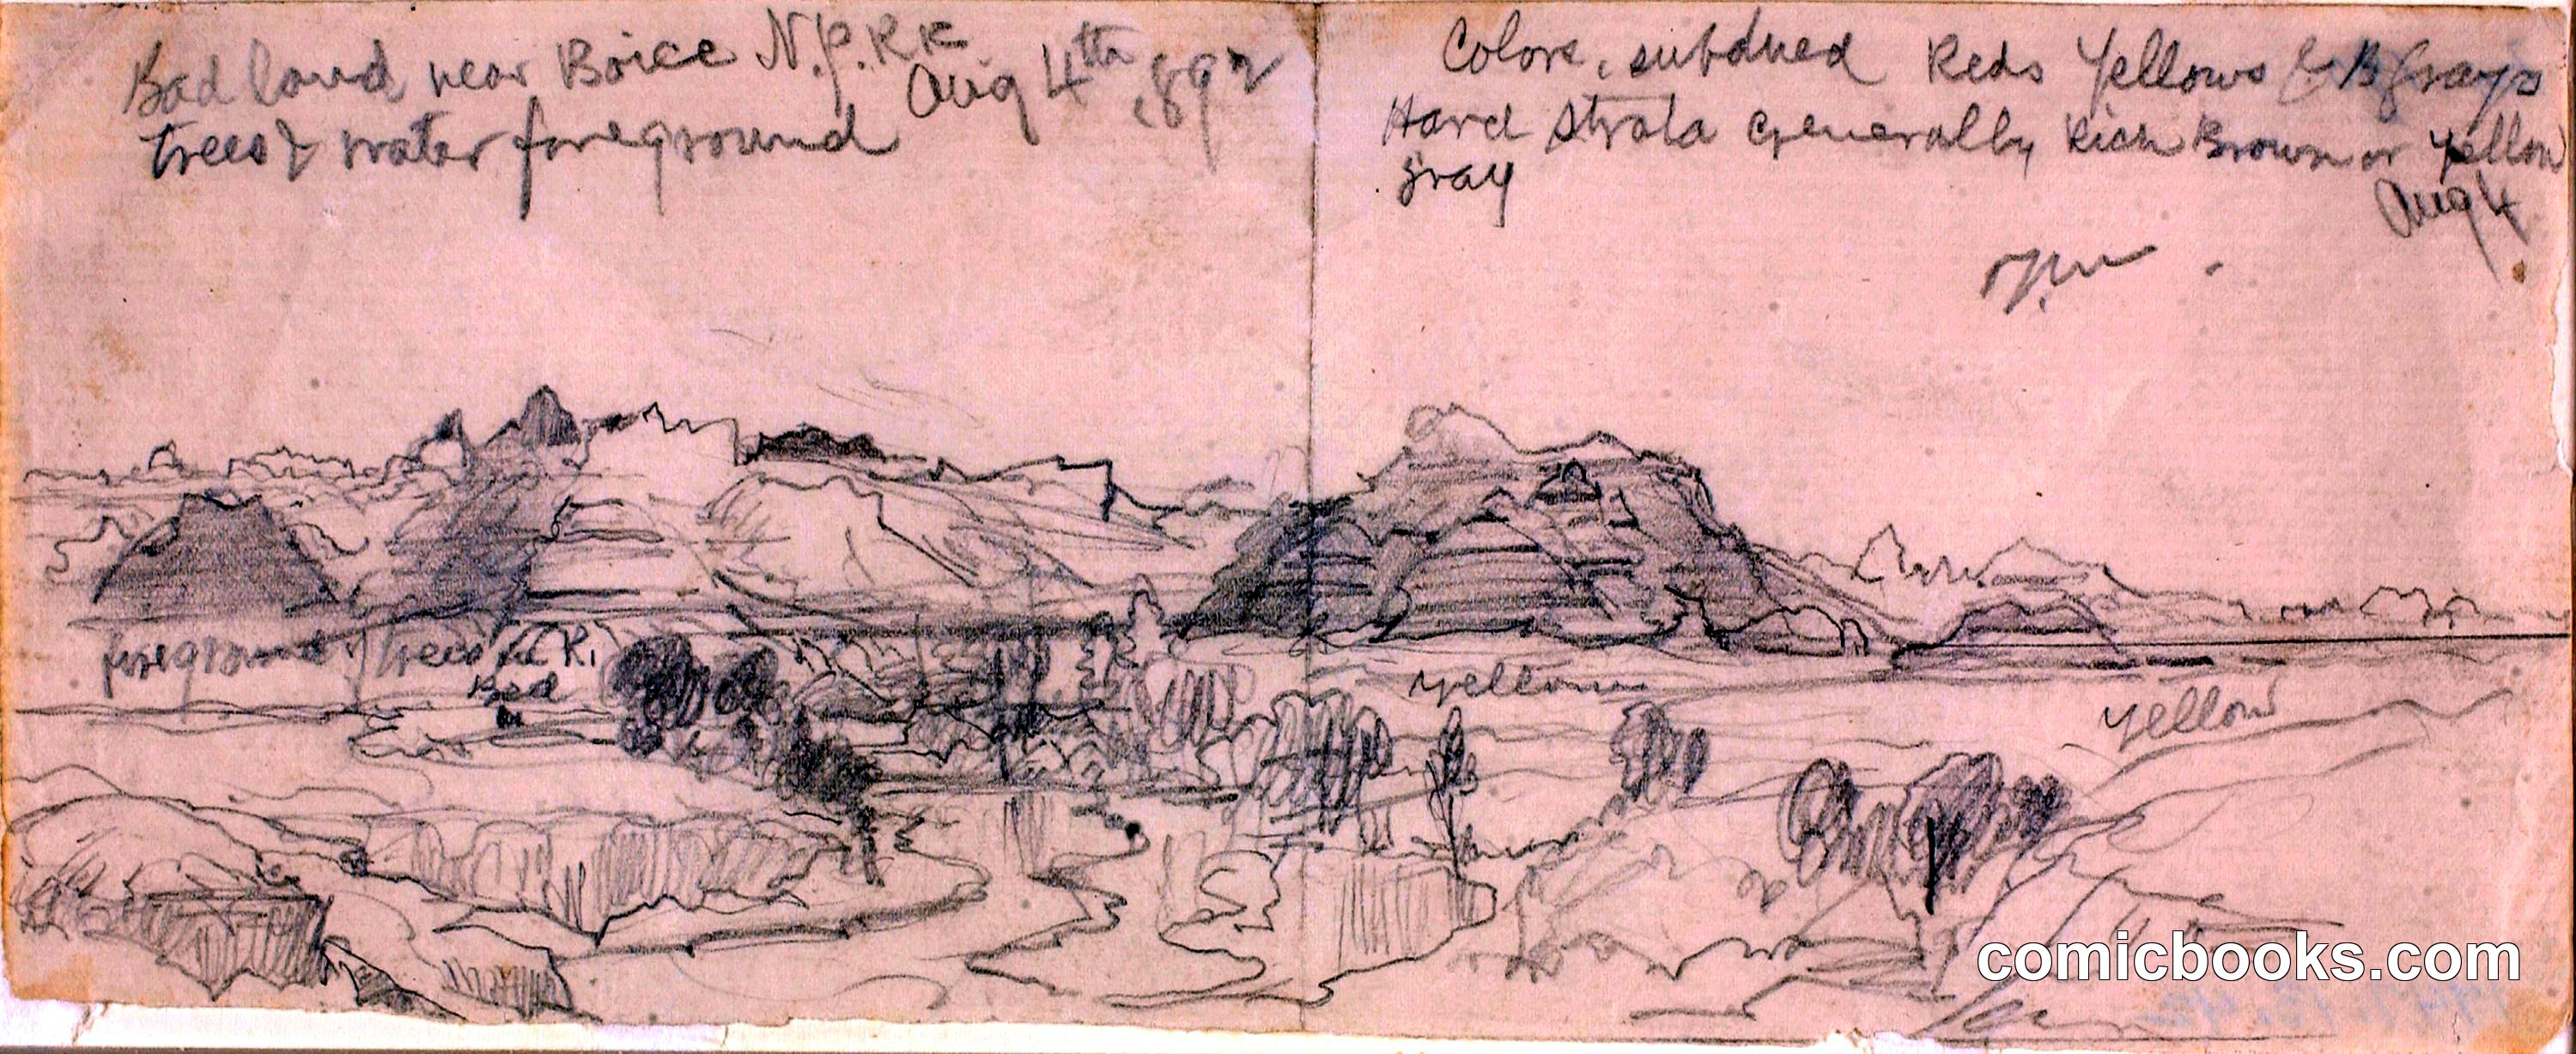 Bad land near Boice N.P.RR
Aug 4th 1892
trees & water foreground
Colors. subdued Reds Yellows & B Grays
Hard Strata Generally Rich Brown or Yellow
gray
Aug 4
foreground trees in R.
Bed
yellow
yellow
comicbooks.com